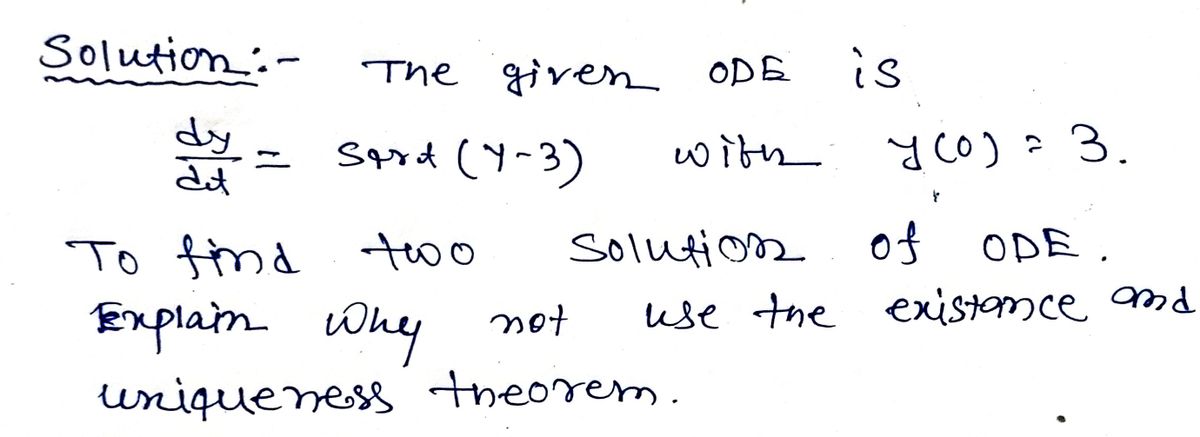 Solution:- The given ODE is
dy/dt = sqrt (y-3) with y(0) = 3.
To find two solution of ODE.
Explain why not use the existance and
uniqueness theorem.